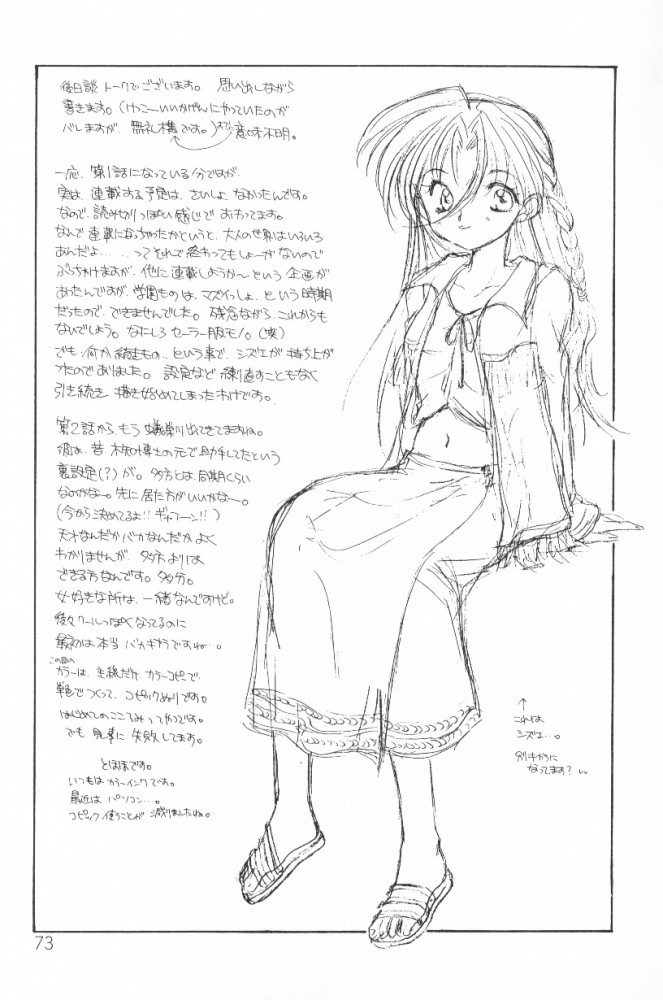 後日談トークでございます。 思い出しながら
書きます。(けっこーいいかげんにやっていたのが
バレますが、無礼構です。)おや意味不明。
一応、第1話になっている分ですが、
実は、連載する予定は、さいしょ、なかったんです。
なので、読み切りっぽい感じで、おわってます。
なんで連載になっちゃったかというと、大人の世界はいろいろ
あんだよ……ってそれで終わってもしょーがないので
ぶっちゃけますが、他に連載しようか〜という企画が
あったんですが、学園ものは、マズイっしょ、という時期
だったので、できませんでした。残念ながら、これからも
ないでしょう。なにしろセーラー服モノ。(笑)
でも何か続きもの、という事で、シズエが持ち上が
ったのでありました。 設定など練り直すこともなく
引き続き 描き始めてしまったわけです。
第2話から、もう 出てきてますね。
彼は、昔、博士の元で助手してたという
裏設定(?)が。多方とは、同期くらい
なのかな〜。先に居た方がいいかな〜。
(今から決めてるよ!!ギャフーン!!)
天才なんだかバカなんだかよく
わかりませんが、多方よりは
できる方なんです。多分。
女好きな所は、一緒なんですけど。
後々クールっぽくなってるのに
最初は本当 バカキャラですね…。
この回の
カラーは、主線だけ、カラーコピーで、
単色でつくって、コピックぬりです。
はじめてのこころみってやつです。
でも 見事に失敗してます。
とほほです。
いつもはカラーインクです。
最近は パソコン…。
コピック使うことが 減りましたね。
↑
これは
シズエ…。
別キャラに
なってます?
73